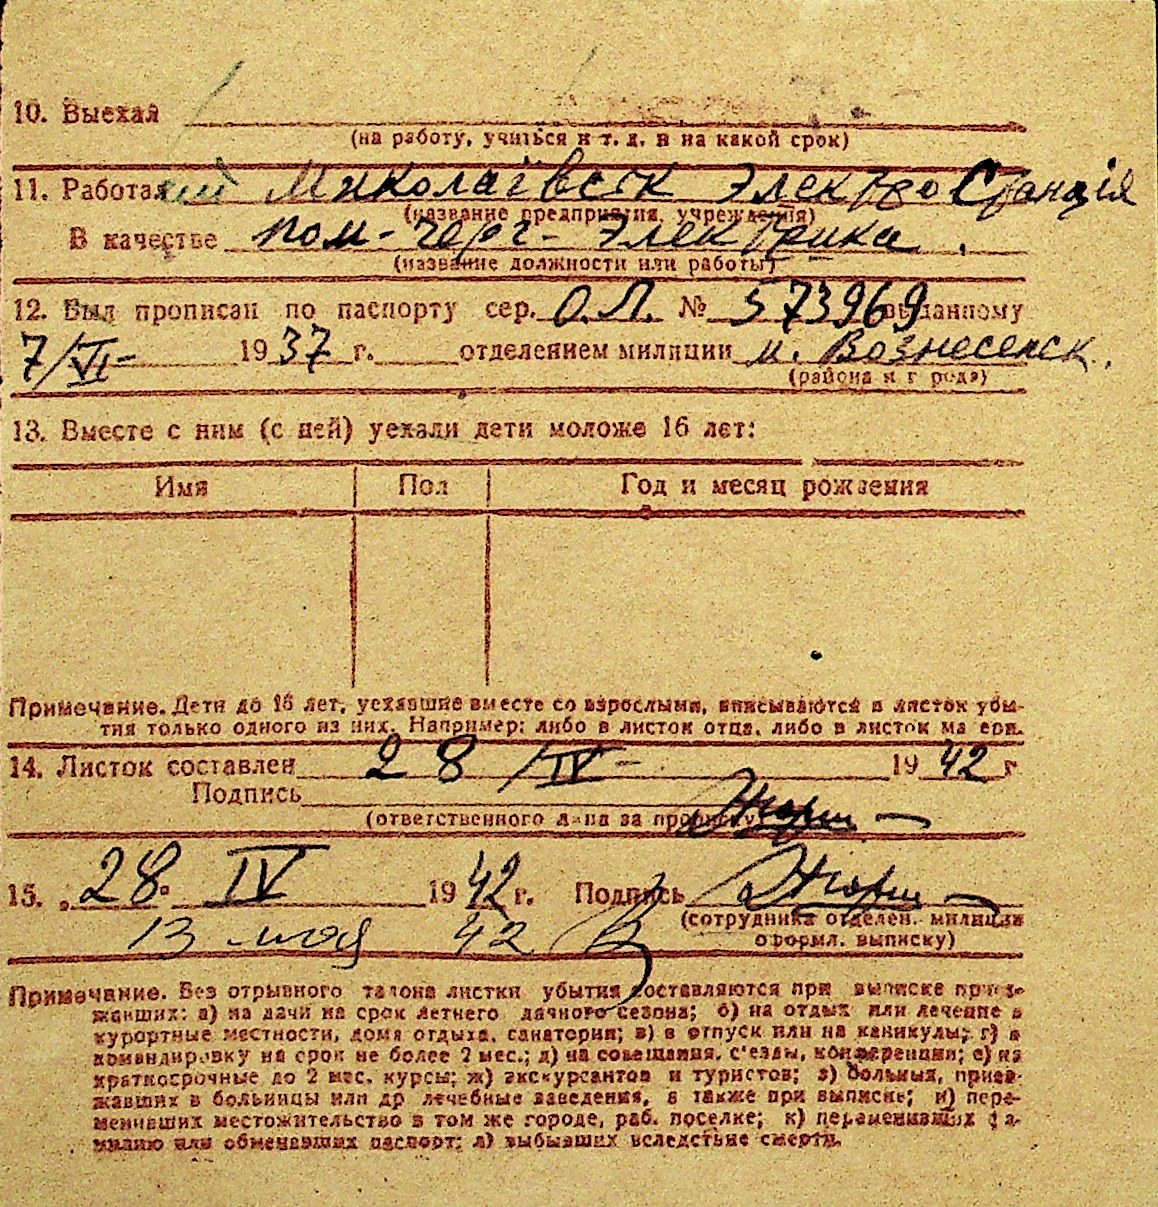 10. Выехал
(на работу, учиться и т. д. и на какой срок)
11. Работа Миколаївск Электро Станція
(название предприятия, учреждения)
В качестве пом-черг- Электрика.
(название должности или работы)
12. Был прописан по паспорту сер. О.Л. № 573969 выданному
7/VI- 1937 г. отделением милиции м. Вознесенск.
(района и города)
13. Вместе с ним (с ней) уехали дети моложе 16 лет:
Имя Пол Год и месяц рождения
Примечание. Дети до 16 лет, уехавшие вместе со взрослыми, вписываются в листок убы-
тия только одного из них. Например: либо в листок отца, либо в листок матери.
14. Листок составлен 28/IV- 1942 г
Подпись
(ответственного лица за прописку)
15. „28" IV 1942 г. Подпись
(сотрудника отделен. милиции
13 мая 42
оформл. выписку)
Примечание. Без отрывного талона листки убытия составляются при выписке приез-
жавших: а) на дачи на срок летнего дачного сезона; б) на отдых или лечение в
курортные местности, дома отдыха, санатории; в) в отпуск или на каникулы; г) в
командировку на срок не более 2 мес.; д) на совещания, с'езды, конференции; е) на
краткосрочные до 2 мес. курсы; ж) экскурсантов и туристов; з) больных, приез-
жавших в больницы или др лечебные заведения, а также при выписке; и) пере-
менивших местожительство в том же городе, раб. поселке; к) переменивших фа-
милию или обменявших паспорт; л) выбывших вследствие смерти.